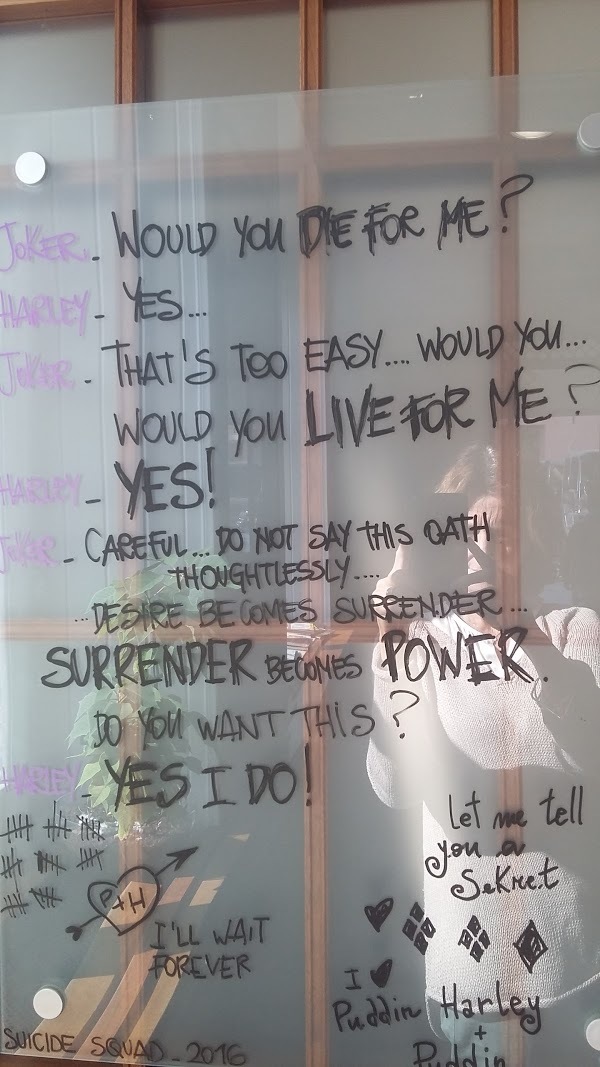 JOKER - WOULD YOU DIE FOR ME?
HARLEY - YES...
JOKER - THAT'S TOO EASY.... WOULD YOU...
WOULD YOU LIVE FOR ME?
HARLEY - YES!
JOKER - CAREFUL... DO NOT SAY THIS OATH
THOUGHTLESSLY....
...DESIRE BECOMES SURRENDER...
SURRENDER BECOMES POWER.
DO YOU WANT THIS?
HARLEY - YES I DO!
let me tell
you a
SeKret
P+H
I'LL WAIT
FOREVER
I ♥
Puddin
Harley
+
Puddin
SUICIDE SQUAD - 2016